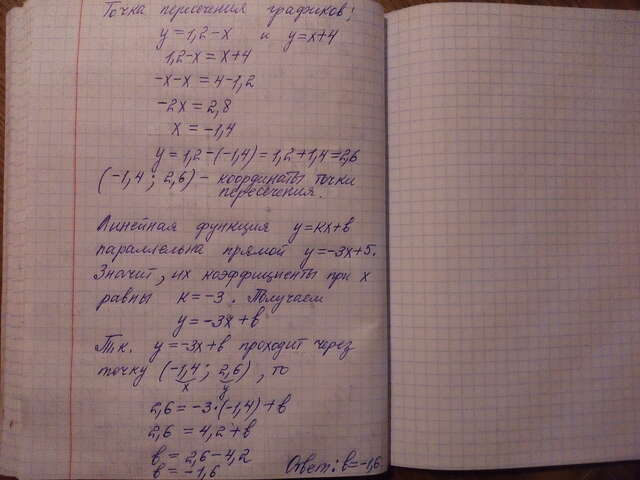 Точка пересечения графиков:
y=1,2-x и y=x+4
1,2-x=x+4
-x-x=4-1,2
-2x=2,8
x=-1,4
y=1,2-(-1,4)=1,2+1,4=2,6
(-1,4; 2,6) - координаты точки
пересечения.
Линейная функция y=kx+b
параллельна прямой y=-3x+5.
Значит, их коэффициенты при x
равны k=-3. Получаем
y=-3x+b
Т.к. y=-3x+b проходит через
точку (-1,4; 2,6), то
x y
2,6=-3·(-1,4)+b
2,6=4,2+b
b=2,6-4,2
b=-1,6 Ответ: b=-1,6.